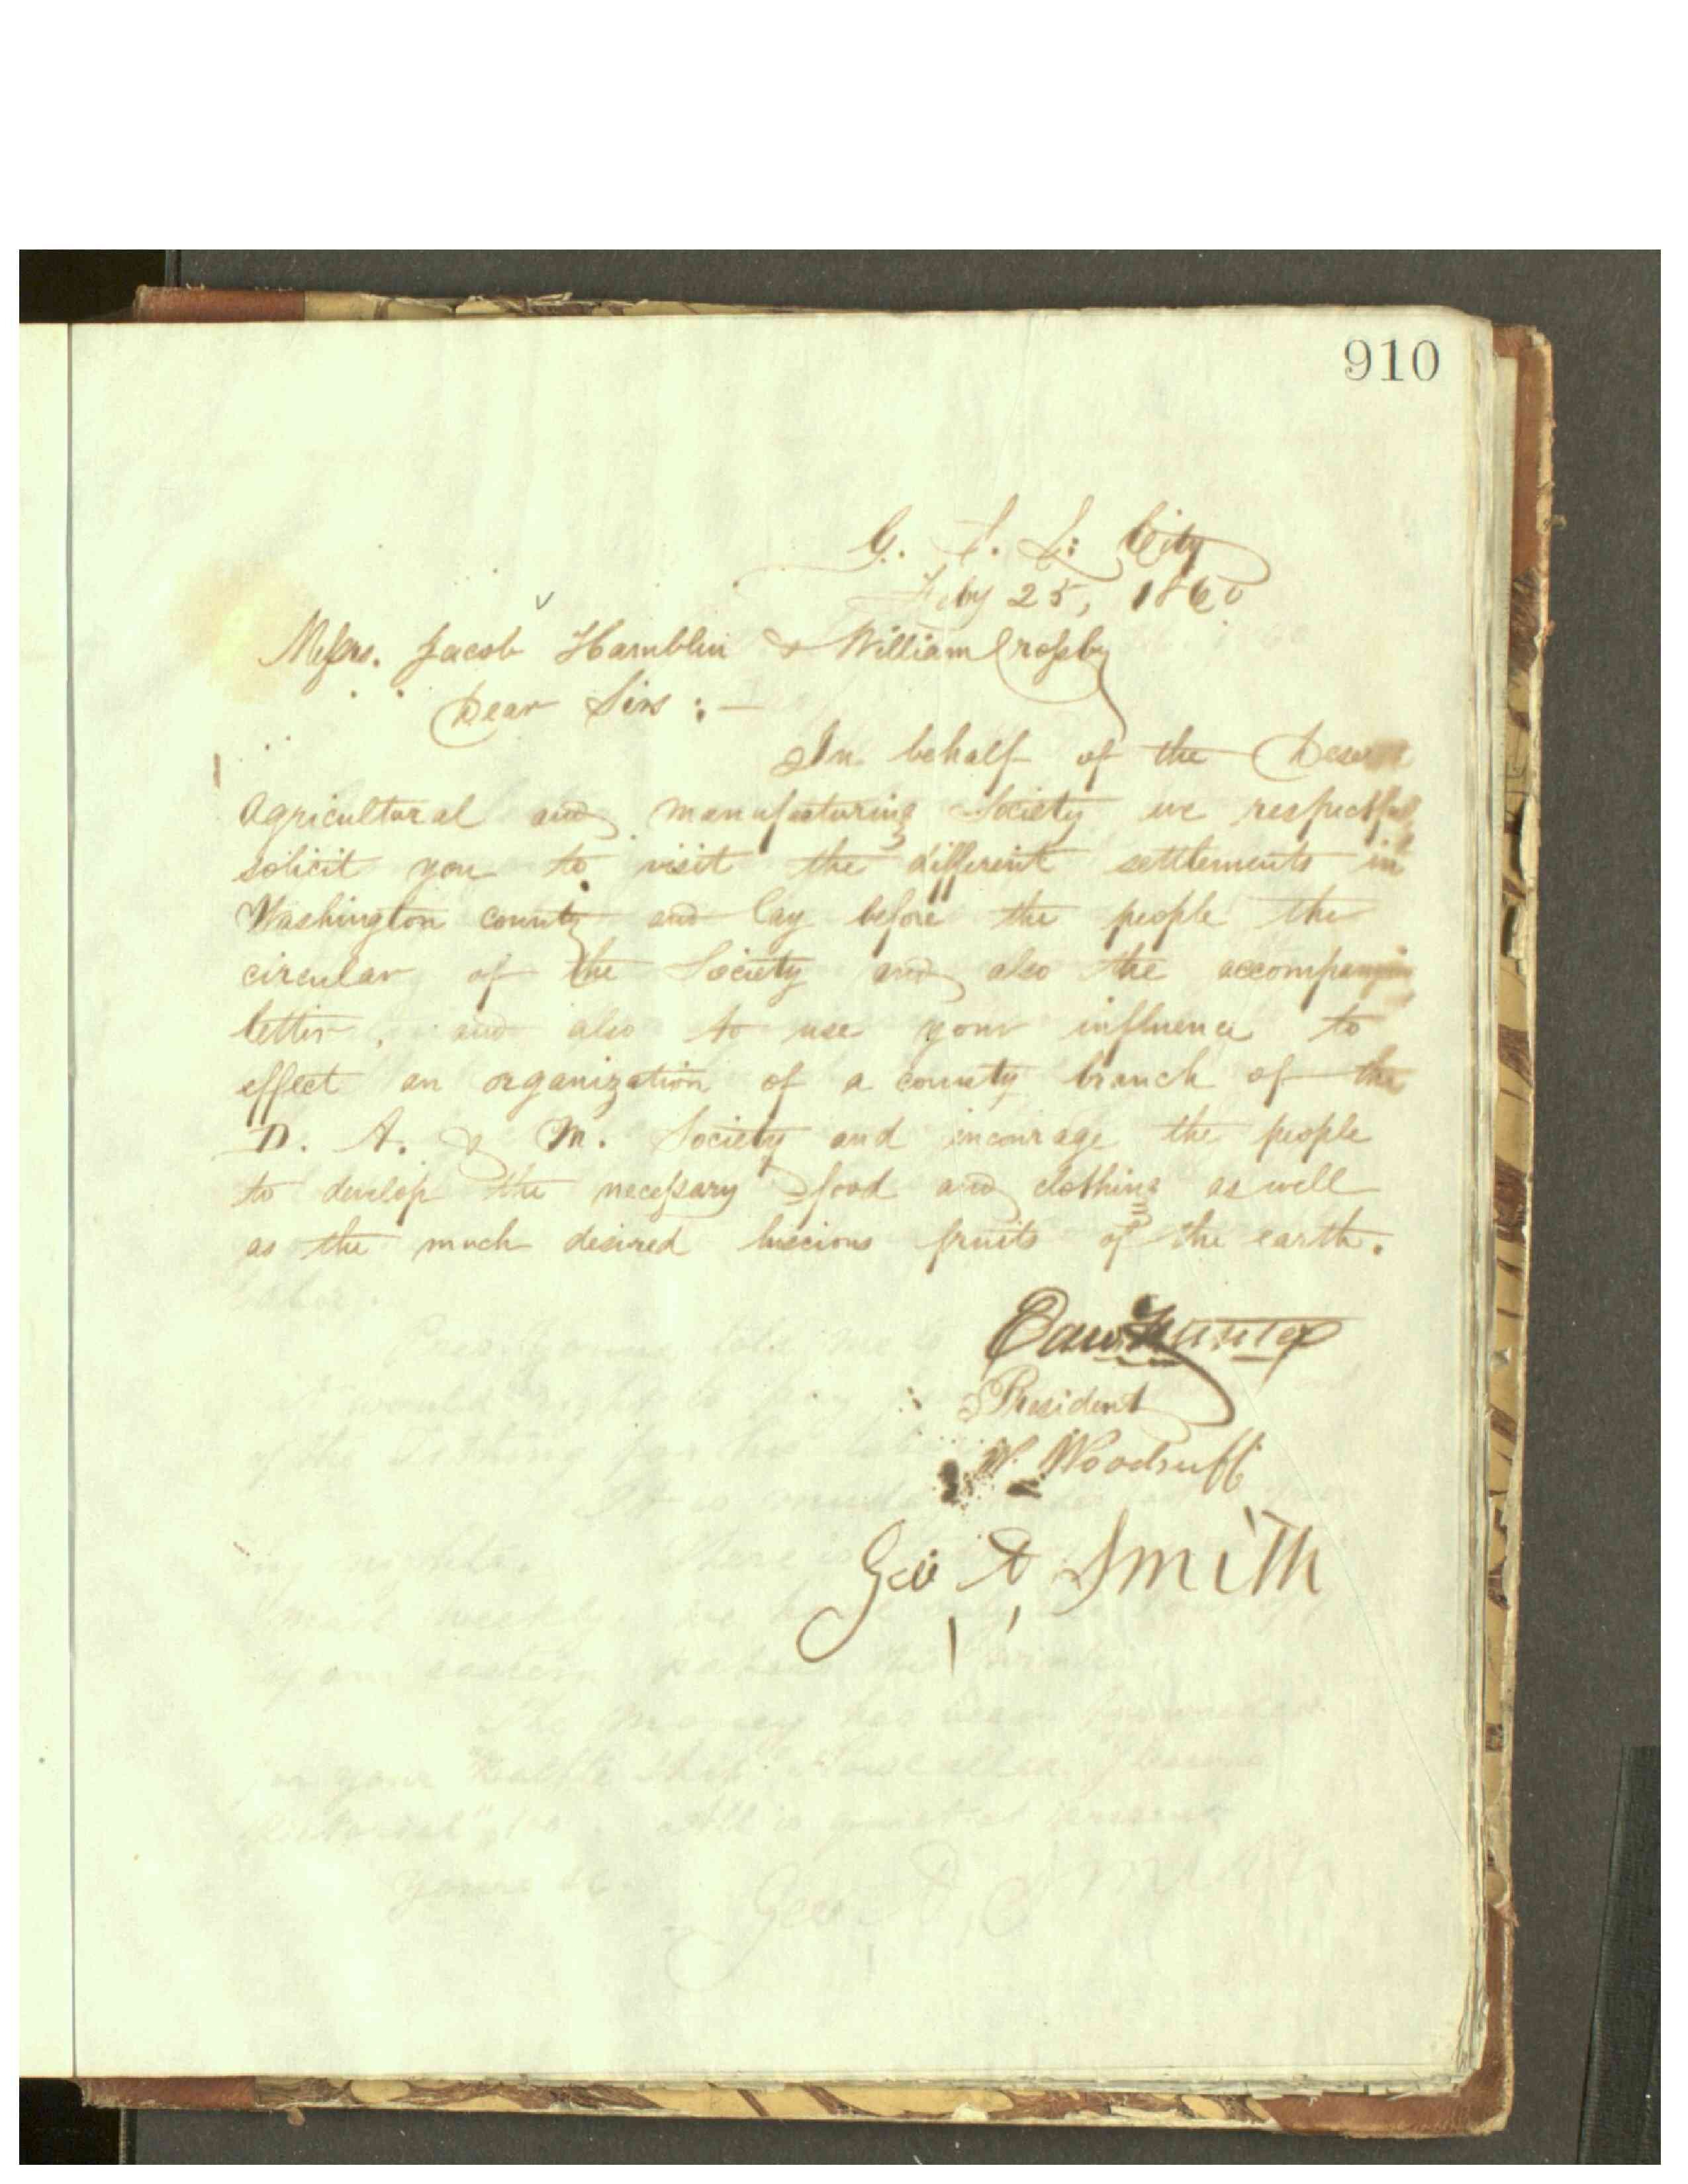 910
G. S. L. City
Feby 25, 1860
Messrs. Jacob Hamblin & William Crossby
Dear Sirs :—
In behalf of the Deseret
Agricultural and manufacturing Society we respectful
solicit you to visit the different settlements in
Washington county and lay before the people the
circular of the Society and also the accompanying
letter, and also to use your influence to
effect an organization of a county branch of the
D. A. & M. Society and encourage the people
to develop the necessary food and clothing as well
as the much desired luscious fruits of the earth.
Edw. Hunter
President
W. Woodruff
Geo A, Smith